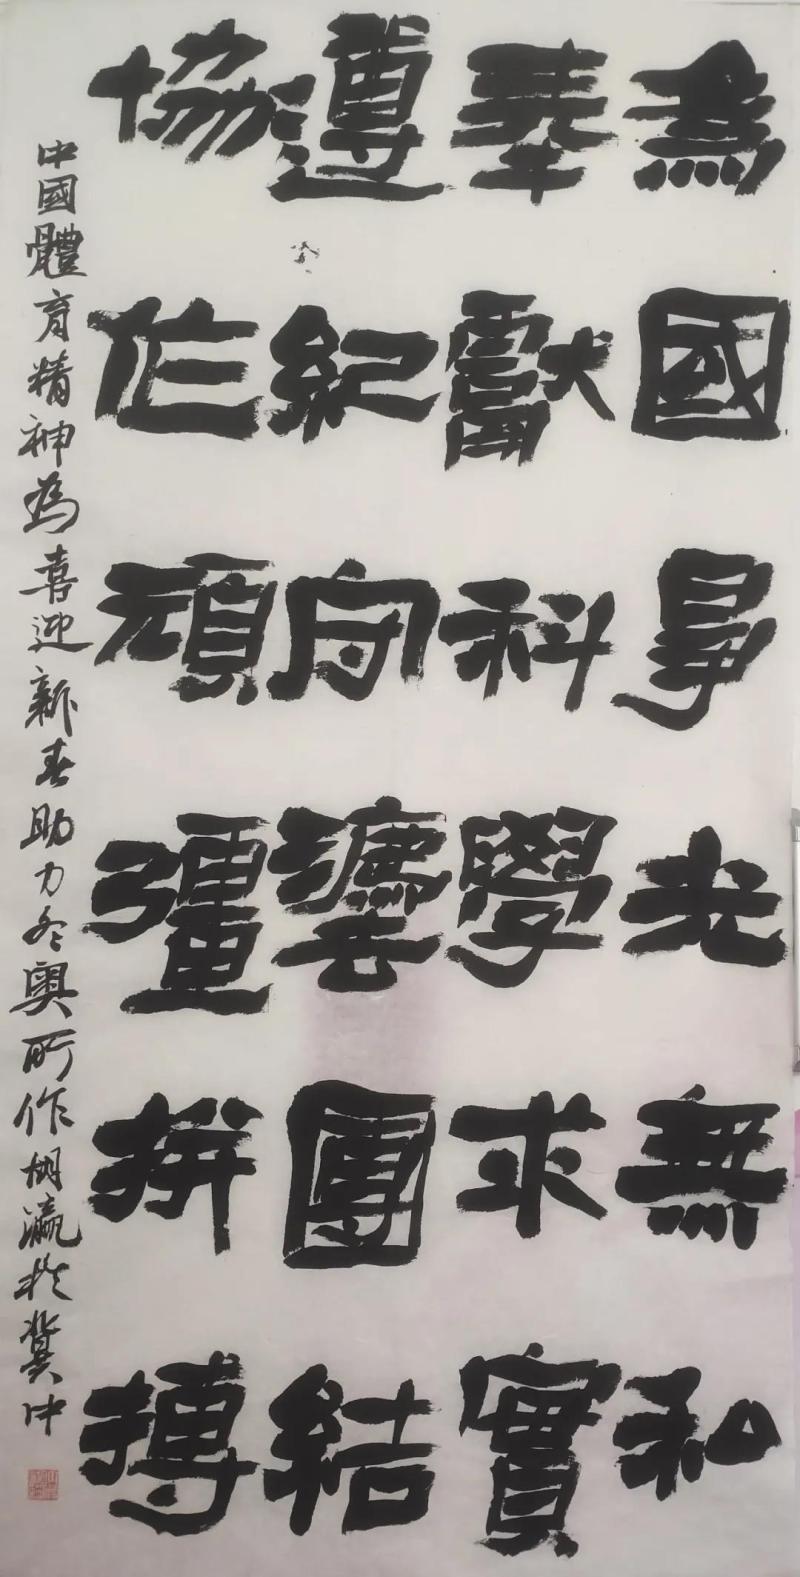 為國爭光無私
奉獻科學求實
遵紀守灋團結
協作頑彊拼搏
中國體育精神為喜迎新春助力冬奧所作胡瀛於冀中